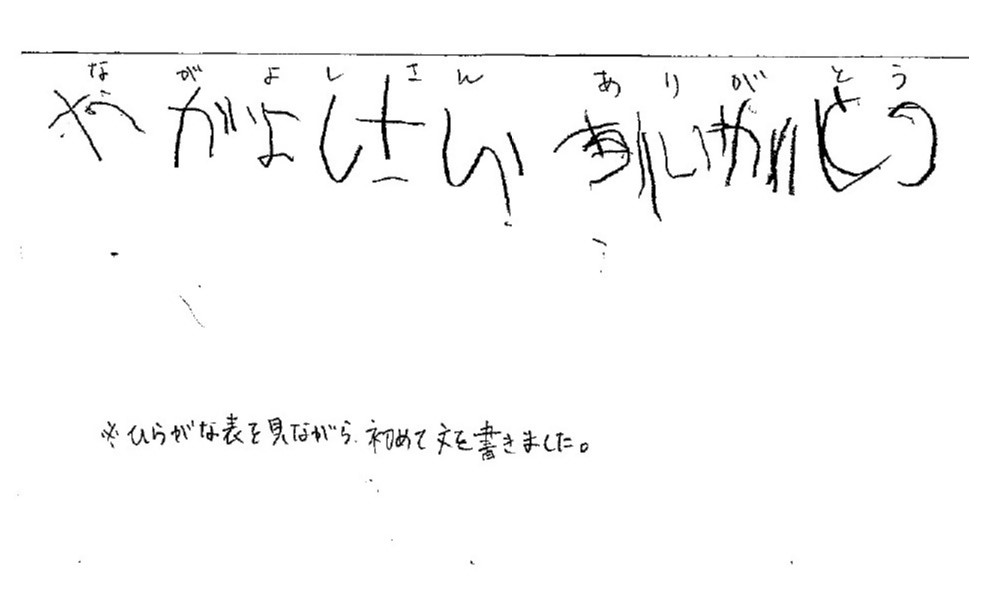 ながよしさん ありがとう
ながよしさん ありがとう
※ひらがな表を見ながら、初めて文を書きました。